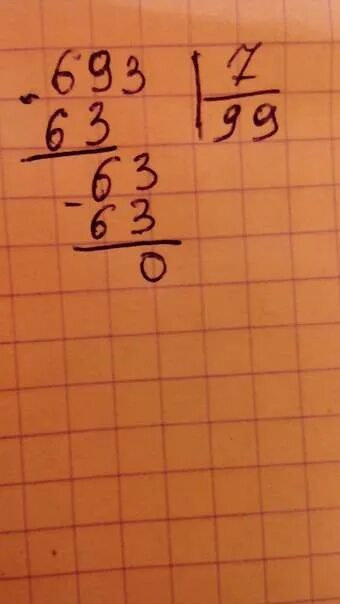 - 693 | 7
63 99
- 63
63
0